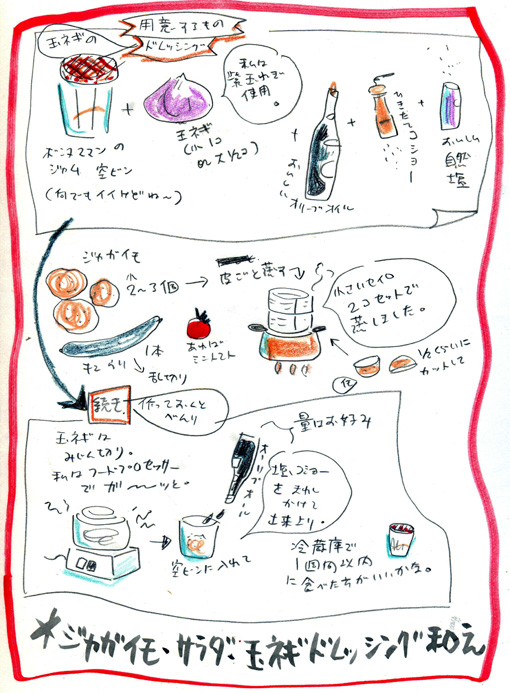 玉ネギの
用意するもの
ドレッシング
ボンヌママンの
ジャム 空ビン
(何でもイイけどね〜)
+
玉ネギ
(小1コ
or 大1/2コ)
私は
紫玉ねぎ
使用。
+
おいしい
オリーブオイル
+
ひきたてコショー
+
おいしい
自然
塩
ジャガイモ
小
2〜3個
→
皮ごと蒸す
小さいセイロ
2コセットで
蒸しました。
1/2くらいに
カットして
きゅうり
1本
乱切り
あれば
ミニトマト
続き
作っておくと
べんり
玉ネギは
みじん切り。
私はフードプロセッサー
でガ〜〜ッと。
空ビンに入れて
オリーブオイル
量はお好み
塩、コショー
を
かけて
出来上り。
冷蔵庫で
1週間以内
に食べた方がいいかな。
*ジャガイモ・サラダ:玉ネギドレッシング和え